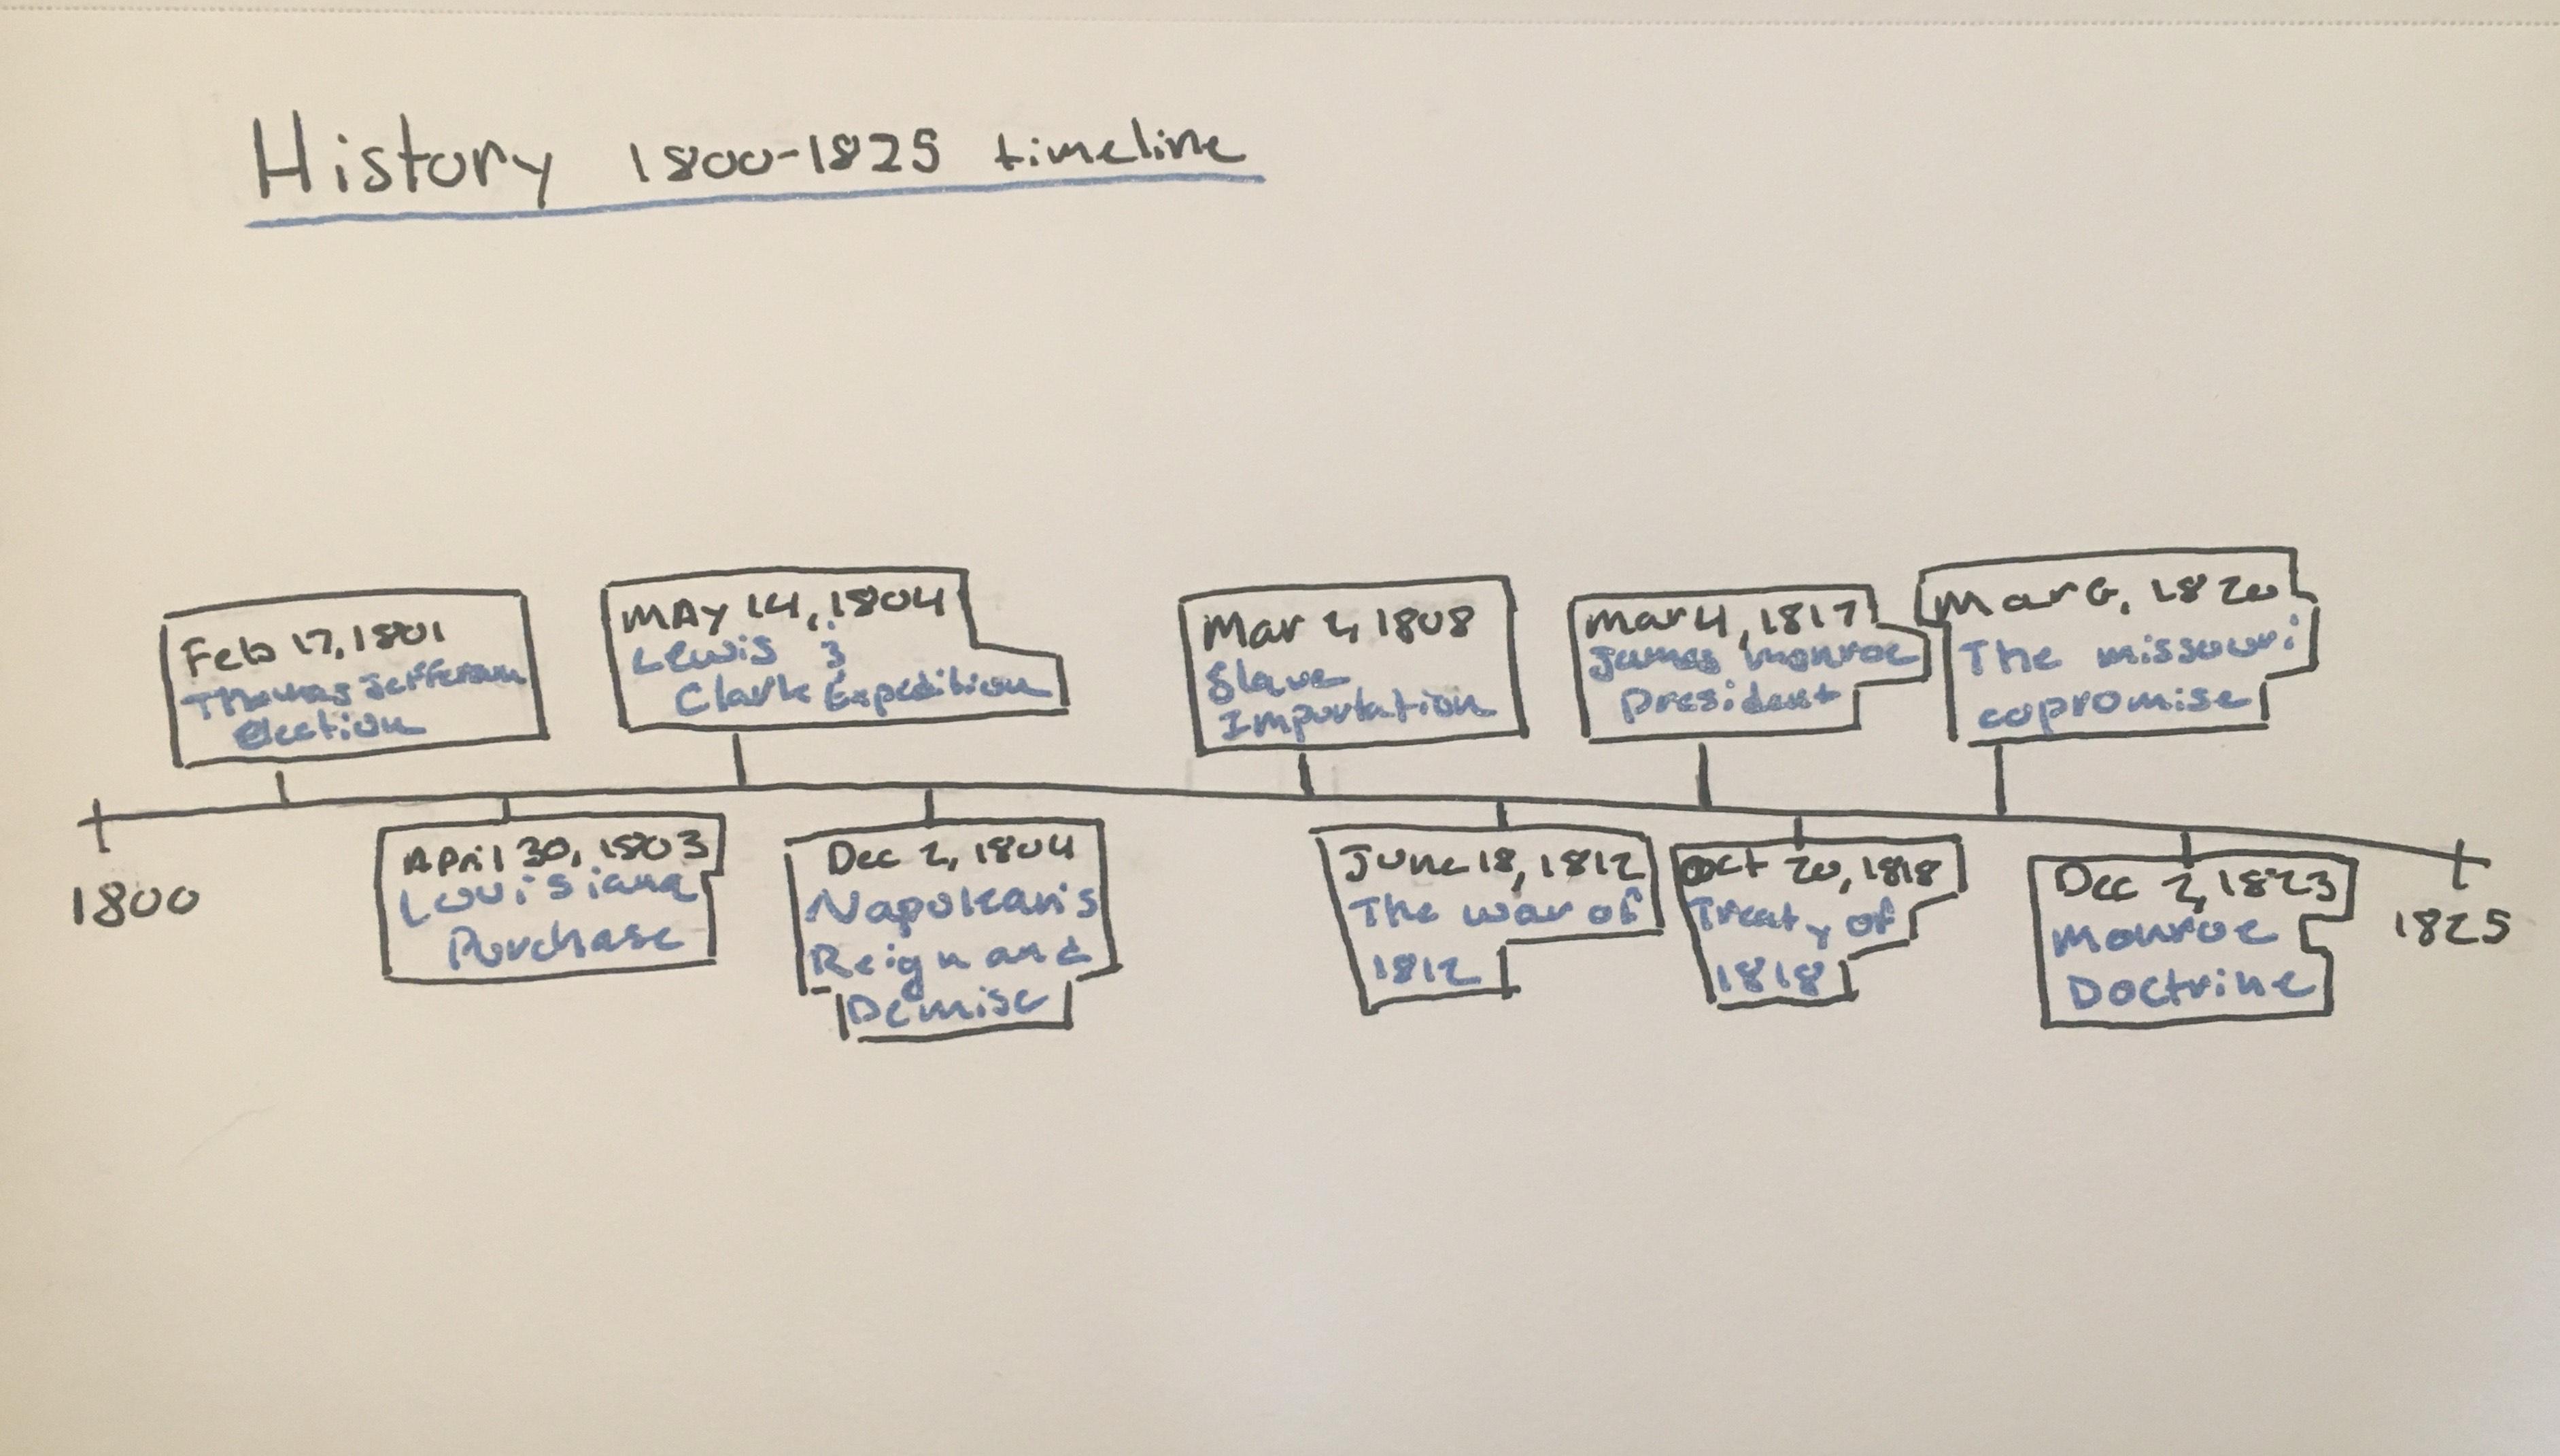 History 1800-1825 timeline
Feb 17, 1801
Thomas Jefferson
election
MAY 14, 1804
Lewis &
Clark Expedition
Mar 2, 1808
Slave
Importation
Mar 4, 1817
James Monroe
President
Mar 6, 1820
The missouri
copromise
1800
April 30, 1803
Louisiana
Purchase
Dec 2, 1804
Napolean's
Reign and
Demise
June 18, 1812
The war of
1812
Oct 20, 1818
Treaty of
1818
Dec 2, 1823
Monroe
Doctrine
1825